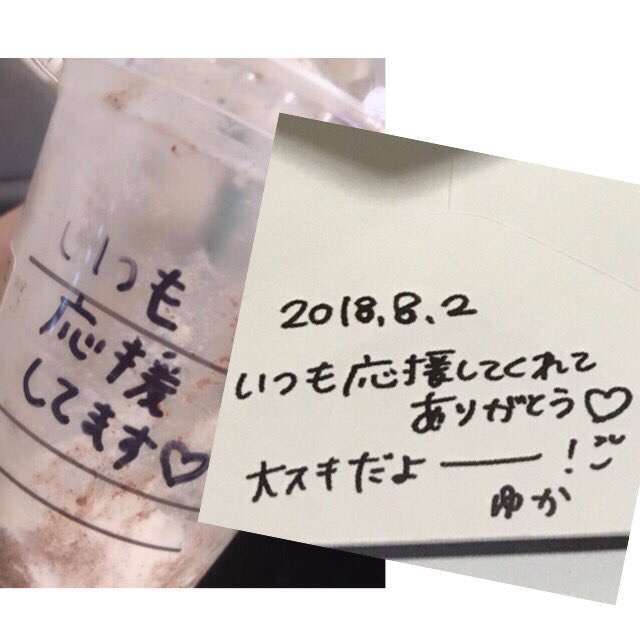 いつも
応援
してます♡
2018.8.2
いつも応援してくれて
ありがとう♡
大スキだよ──!
ゆか